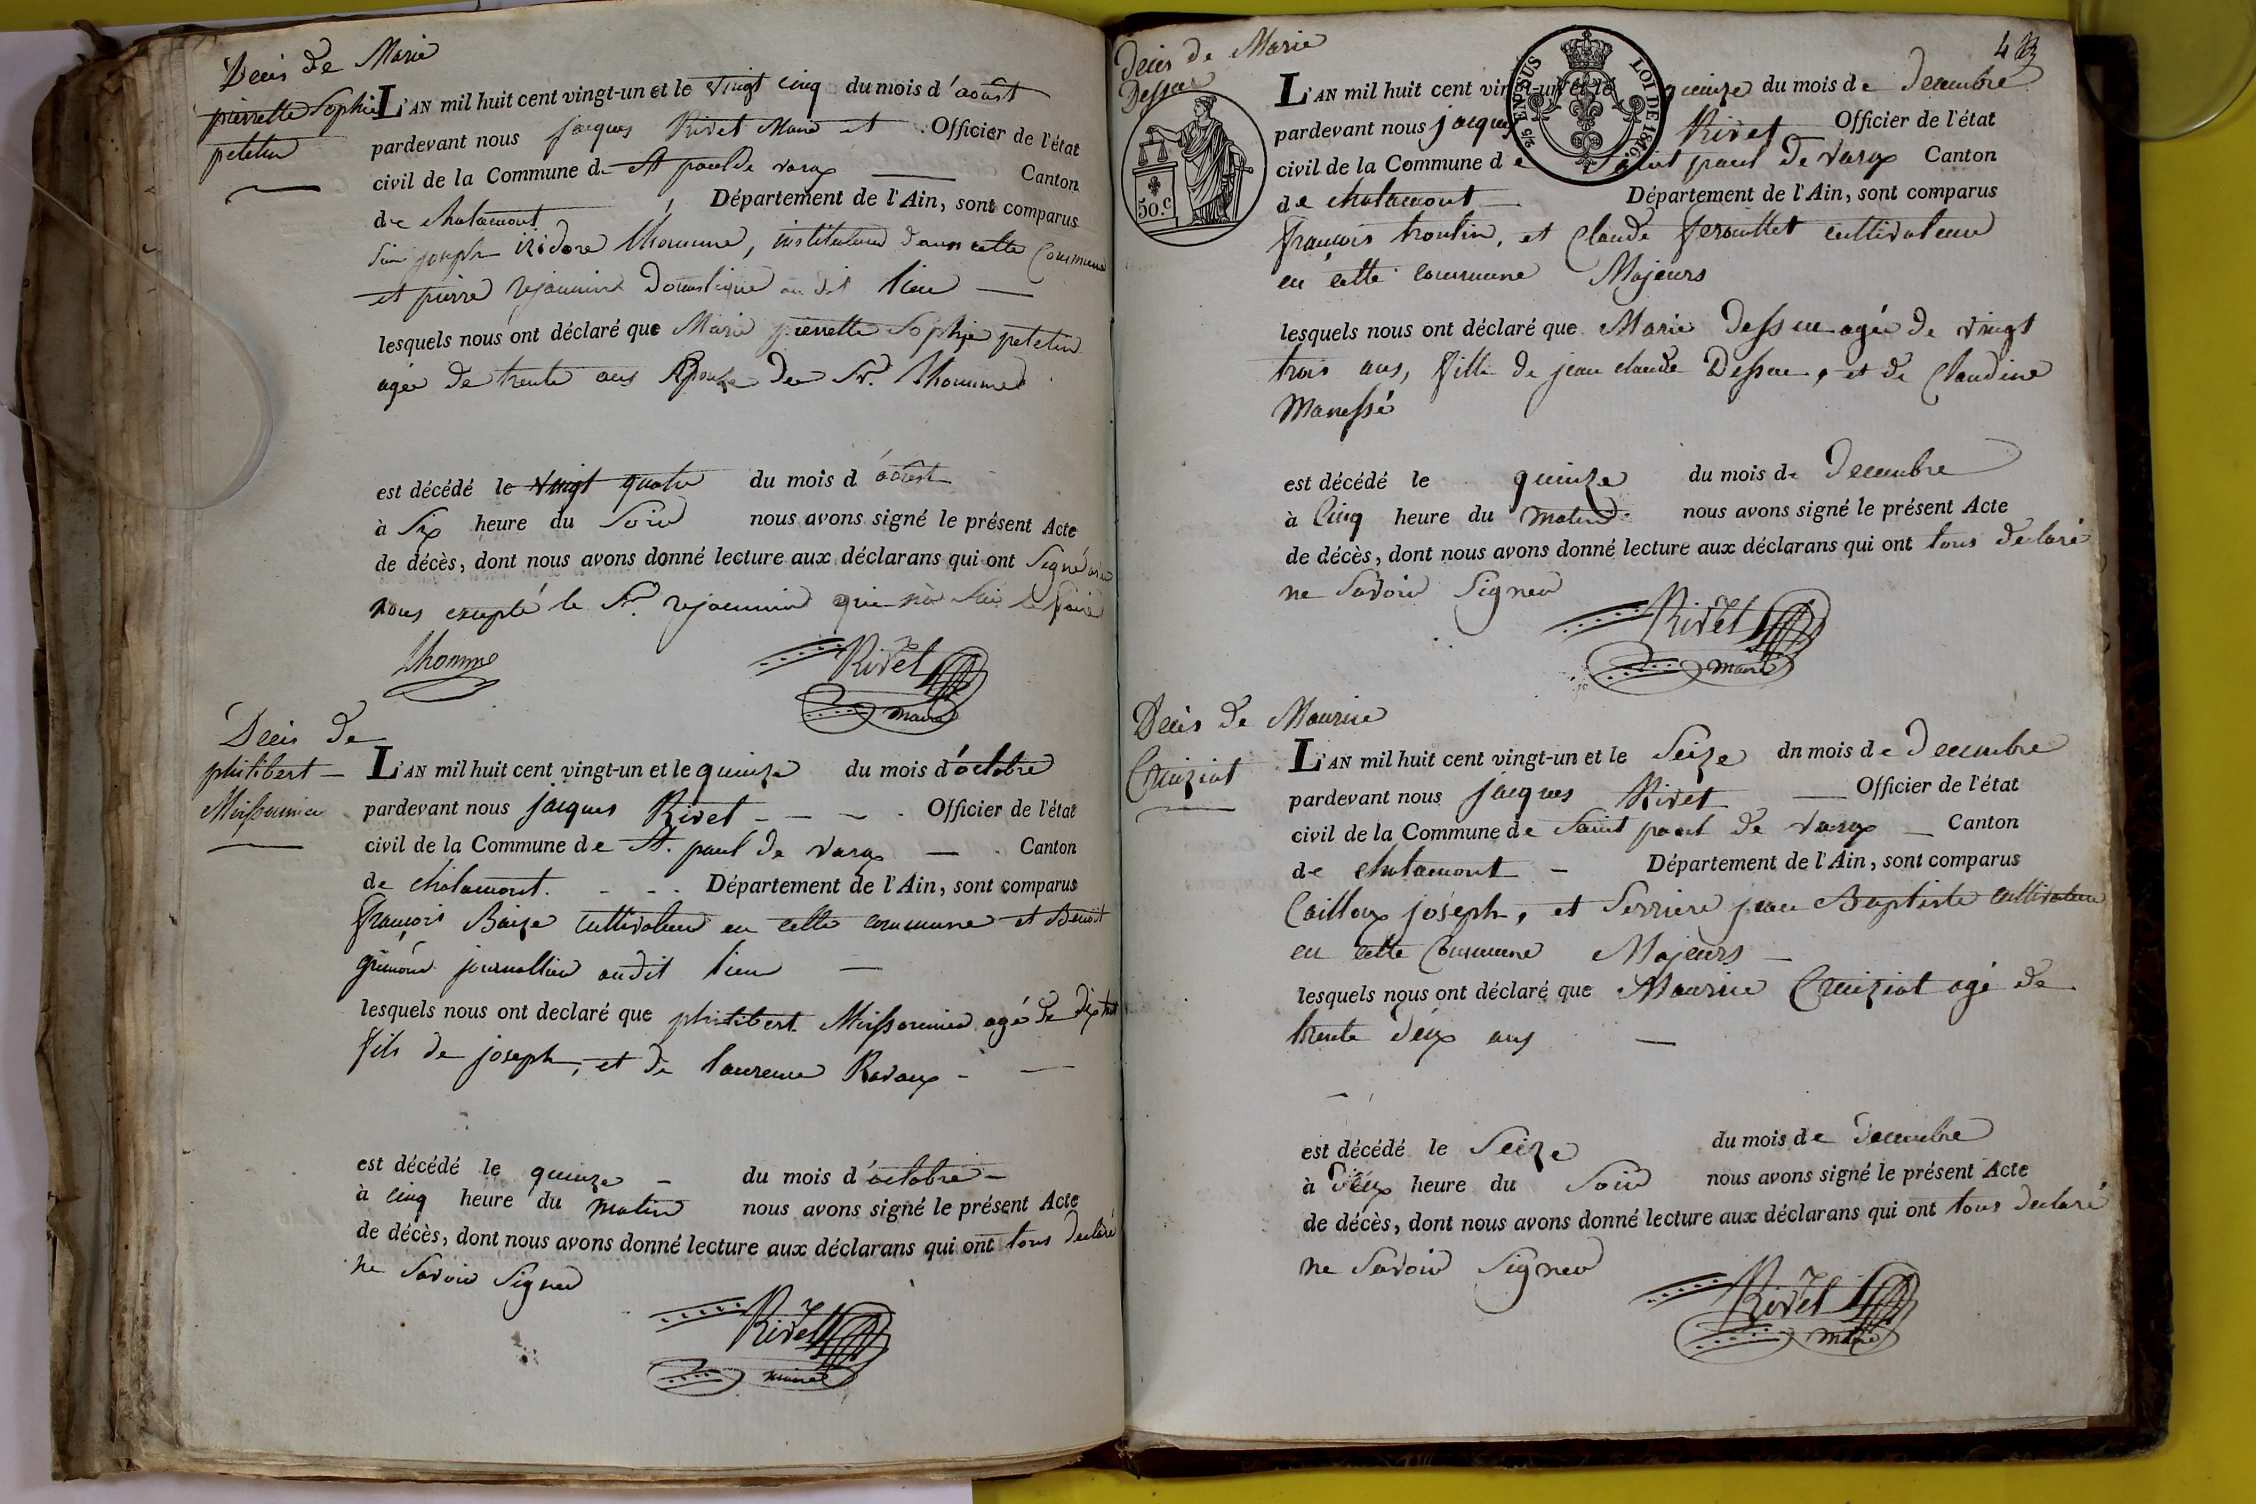 Décès de Marie
pierrette Sophie
petetin
L'AN mil huit cent vingt-un et le vingt cinq du mois d'aoust
pardevant nous jacques Rivet Maire et Officier de l'état
civil de la Commune de St paul de varax Canton
de chalamont, Département de l'Ain, sont comparus
Sieur joseph izidore Lhomme, instituteur dans cette Commune
et pierre rejaunier Domestique au dit lieu
lesquels nous ont déclaré que Marie pierrette Sophie petetin
agée de trente ans Epouse de Sr. Lhomme
est décédé le vingt quatre du mois d'aoust
à Six heure du Soir nous avons signé le présent Acte
de décès, dont nous avons donné lecture aux déclarans qui ont Signé avec
nous excepté le Sr. rejaunier qui ne Sai le faire
Lhomme Rivet
maire
Décès de
philibert
Meissonnier
L'AN mil huit cent vingt-un et le quinze du mois d'octobre
pardevant nous jacques Rivet Officier de l'état
civil de la Commune de St. paul de varax Canton
de chalamont. Département de l'Ain, sont comparus
françois Baize cultivateur en cette commune et Benoit
grimond journallier audit lieu
lesquels nous ont declaré que philibert Meissonnier agé de dix huit
fils de joseph, et de laurence Ravaux
est décédé le quinze du mois d'octobre
à cinq heure du matin nous avons signé le présent Acte
de décès, dont nous avons donné lecture aux déclarans qui ont tous déclaré
ne Savoir Signer
Rivet
maire
Décès de Marie
Dessus
50.c
EN SUS
LOI DE 1816
L'AN mil huit cent vingt-un et le quinze du mois de Decembre
pardevant nous jacques Rivet Officier de l'état
civil de la Commune de Saint paul de varax Canton
de chalamont Département de l'Ain, sont comparus
françois troulin, et Claude ferouillet cultivateur
en cette commune Majeurs
lesquels nous ont déclaré que Marie Dessus agée de vingt
trois ans, fille de jean claude Dessus, et de Claudine
Manessé
est décédé le quinze du mois de Decembre
à Cinq heure du matin nous avons signé le présent Acte
de décès, dont nous avons donné lecture aux déclarans qui ont tous déclaré
ne Savoir Signer
Rivet
maire
Décès de Maurice
Cruiziat
L'AN mil huit cent vingt-un et le Seize dn mois de Decembre
pardevant nous jacques Rivet Officier de l'état
civil de la Commune de Saint paul de varax Canton
de chalamont Département de l'Ain, sont comparus
Cailloux joseph, et Serriere jean Baptiste cultivateur
en cette Commune Majeurs
lesquels nous ont déclaré que Maurice Cruiziat agé de
trente deux ans
est décédé le Seize du mois de decembre
à deux heure du Soir nous avons signé le présent Acte
de décès, dont nous avons donné lecture aux déclarans qui ont tous declaré
ne Savoir Signer
Rivet
maire